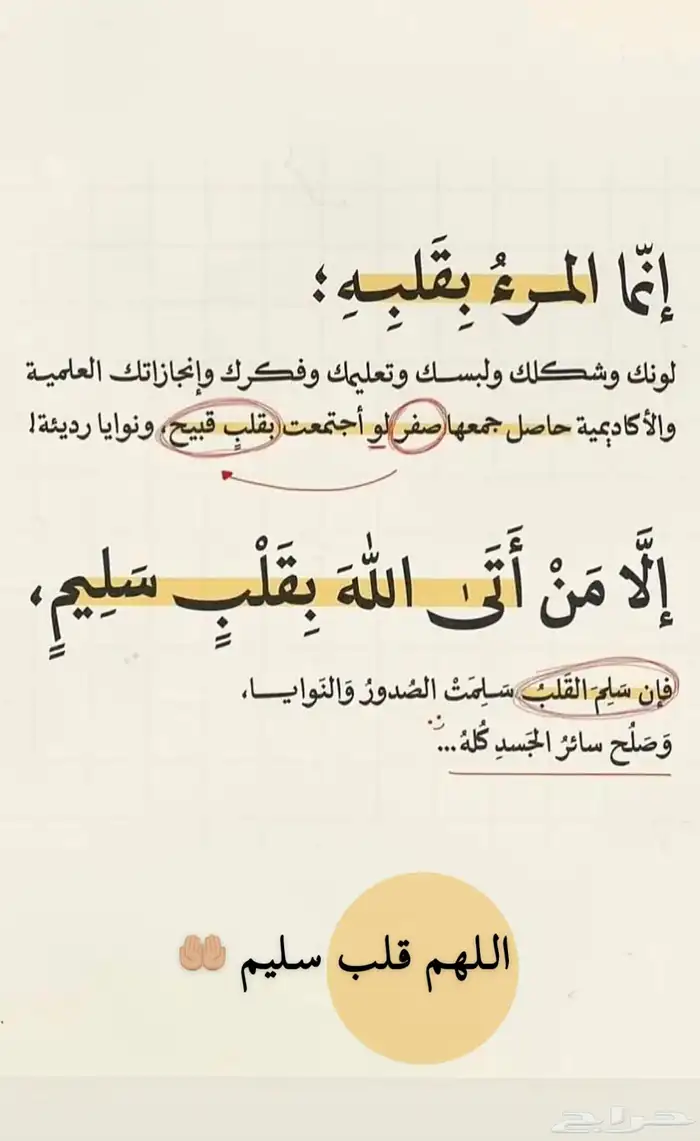 إنّما المرءُ بِقَلبِهِ :
لونك وشكلك ولبسك وتعليمك وفكرك وإنجازاتك العلمية
والأكاديمية حاصل جمعها صفر لو أجتمعت بقلبٍ قبيح، ونوايا رديئة!
إلَّا مَنْ أَتَى اللَّهَ بِقَلْبٍ سَلِيمٍ،
فإن سَلِمَ القَلبُ سَلِمَتْ الصُدورُ وَالنَوايا،
وَصَلُح سائرُ الجَسدِ كُلهُ...
اللهم قلب سليم 🤲🏼
حراج